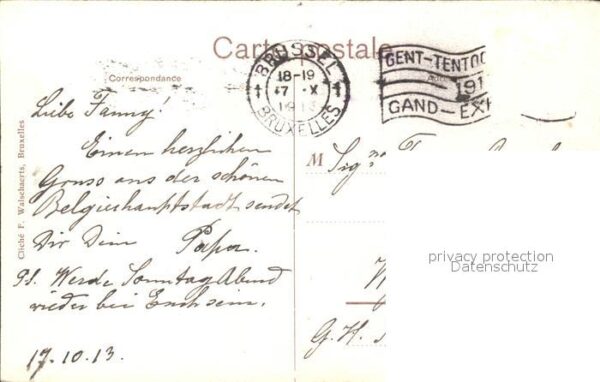 Carte postale
Correspondance
BRUSSEL
18-19
17 X
1913
BRUXELLES
GENT-TENTOO
191
GAND-EX
Liebe Fanny!
Einen herzlichen
Gruss aus der schönen
Belgierhauptstadt sendet
Dir Dein Papa.
PS. Werde Sonntag Abend
wieder bei Euch sein.
17.10.13.
M
G. H.
privacy protection
Datenschutz
Cliché F. Walschaerts, Bruxelles